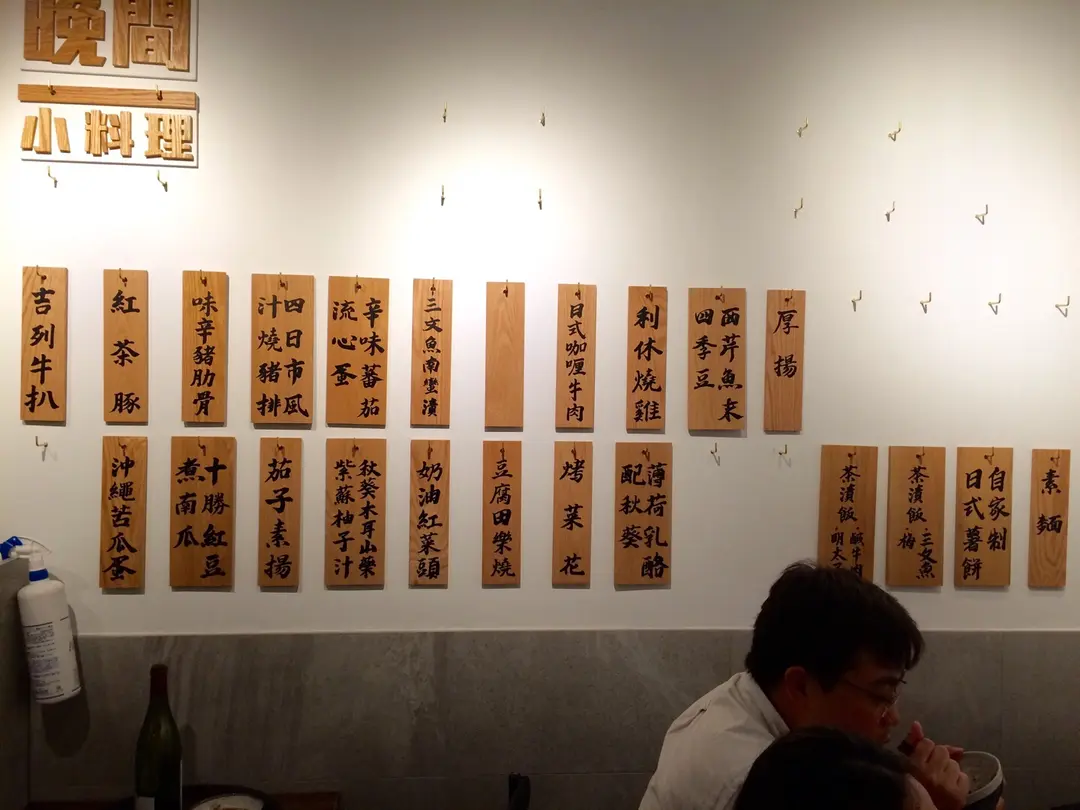 晚間
小料理
吉列牛扒
紅茶豚
味辛豬肋骨
四日市風
汁燒豬排
辛味蕃茄
流心蛋
三文魚南蠻漬
日式咖喱牛肉
利休燒雞
西芹魚末
四季豆
厚揚
沖繩苦瓜蛋
十勝紅豆
煮南瓜
茄子素揚
秋葵木耳山藥
紫蘇柚子汁
奶油紅菜頭
豆腐田樂燒
烤菜花
薄荷乳酪
配秋葵
茶漬飯
鹹牛肉
明太
茶漬飯
三文魚
梅
自家制
日式薯餅
素麵